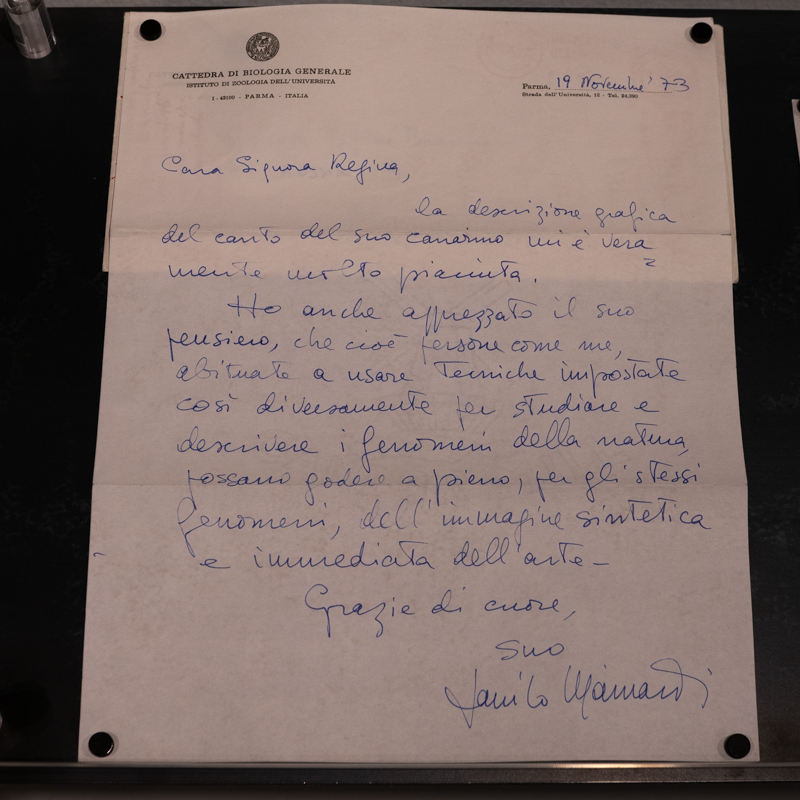 CATTEDRA DI BIOLOGIA GENERALE
ISTITUTO DI ZOOLOGIA DELL'UNIVERSITÀ
I - 43100 - PARMA - ITALIA
Parma, 19 Novembre '73
Strada dell'Università, 12 - Tel. 24.390
Cara Signora Regina,
la descrizione grafica
del canto del suo canarino mi è vera=
mente molto piaciuta.
Ho anche apprezzato il suo
pensiero, che cioè persone come me,
abituate a usare tecniche impostate
così diversamente per studiare e
descrivere i fenomeni della natura,
possano godere a pieno, per gli stessi
fenomeni, dell'immagine sintetica
e immediata dell'arte-
Grazie di cuore,
suo
Danilo Mainardi